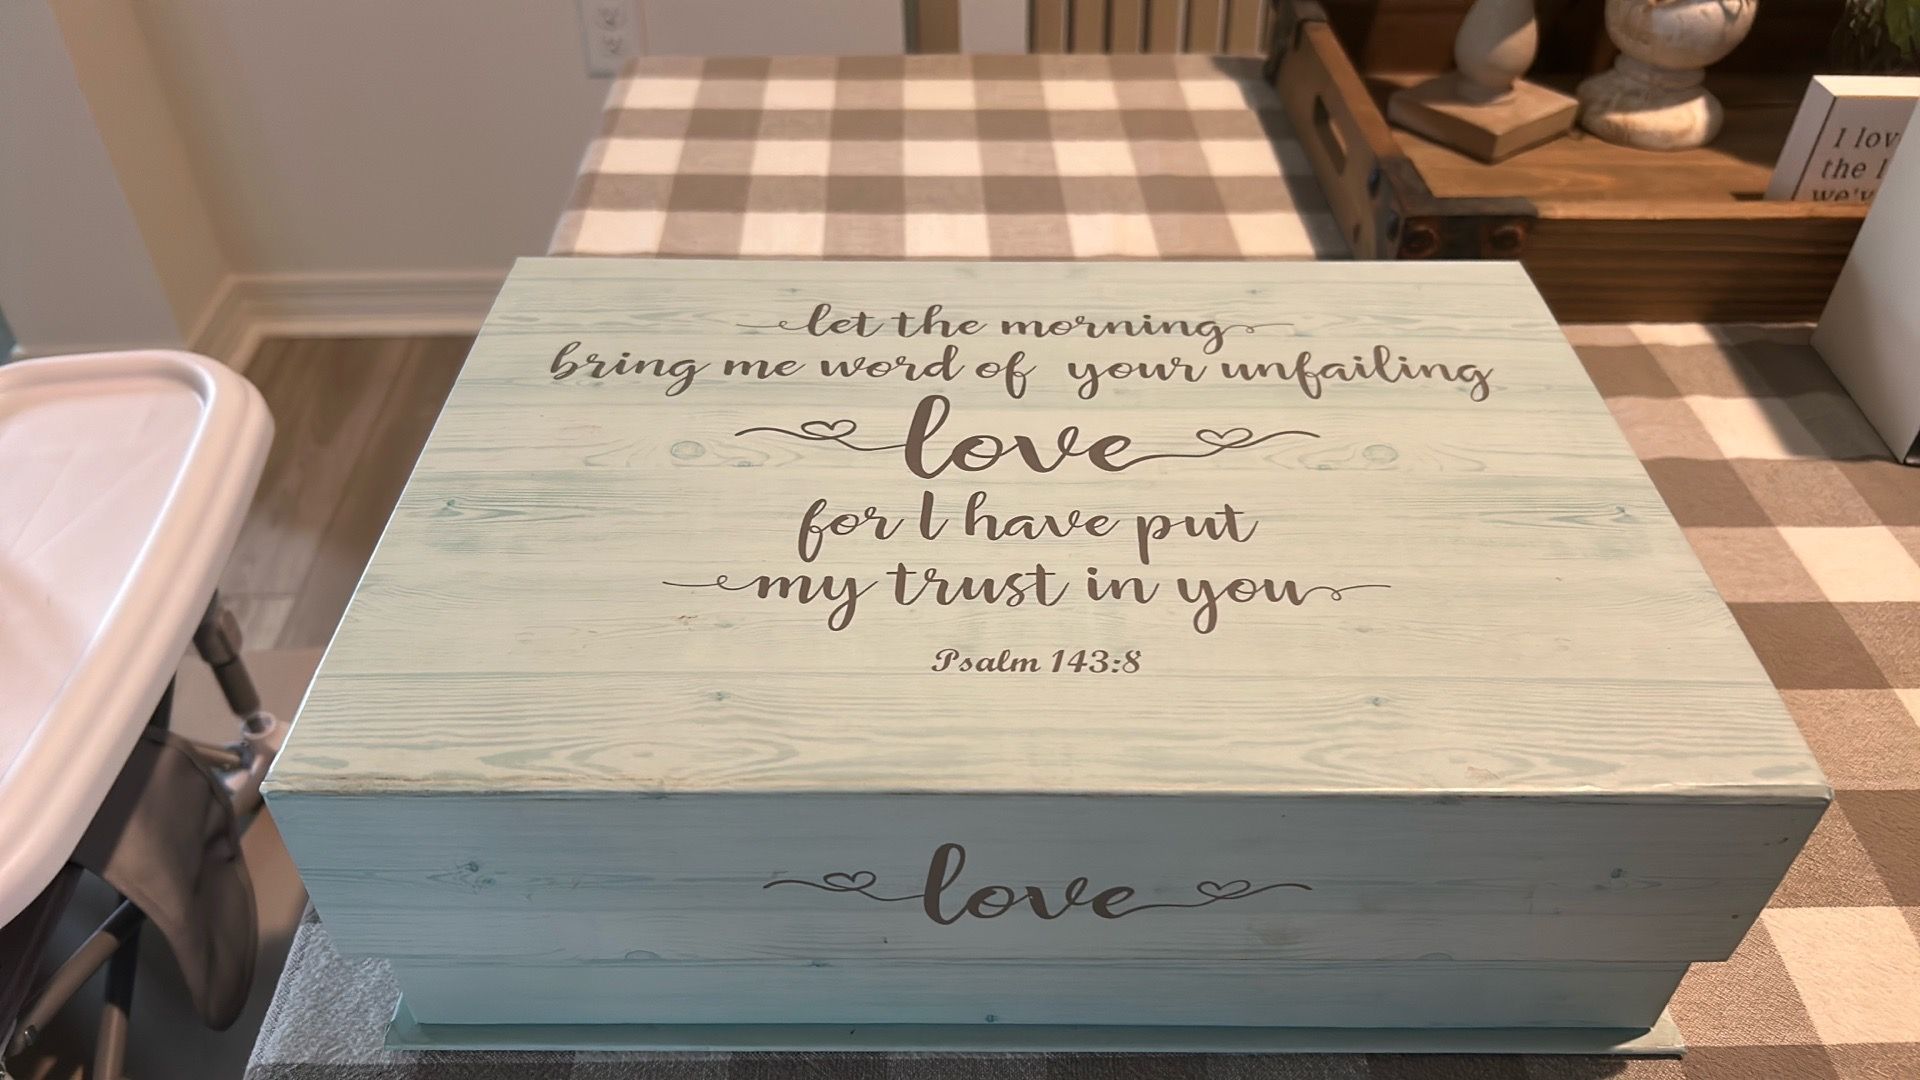 let the morning
bring me word of your unfailing
love
for I have put
my trust in you
Psalm 143:8
love
I
the